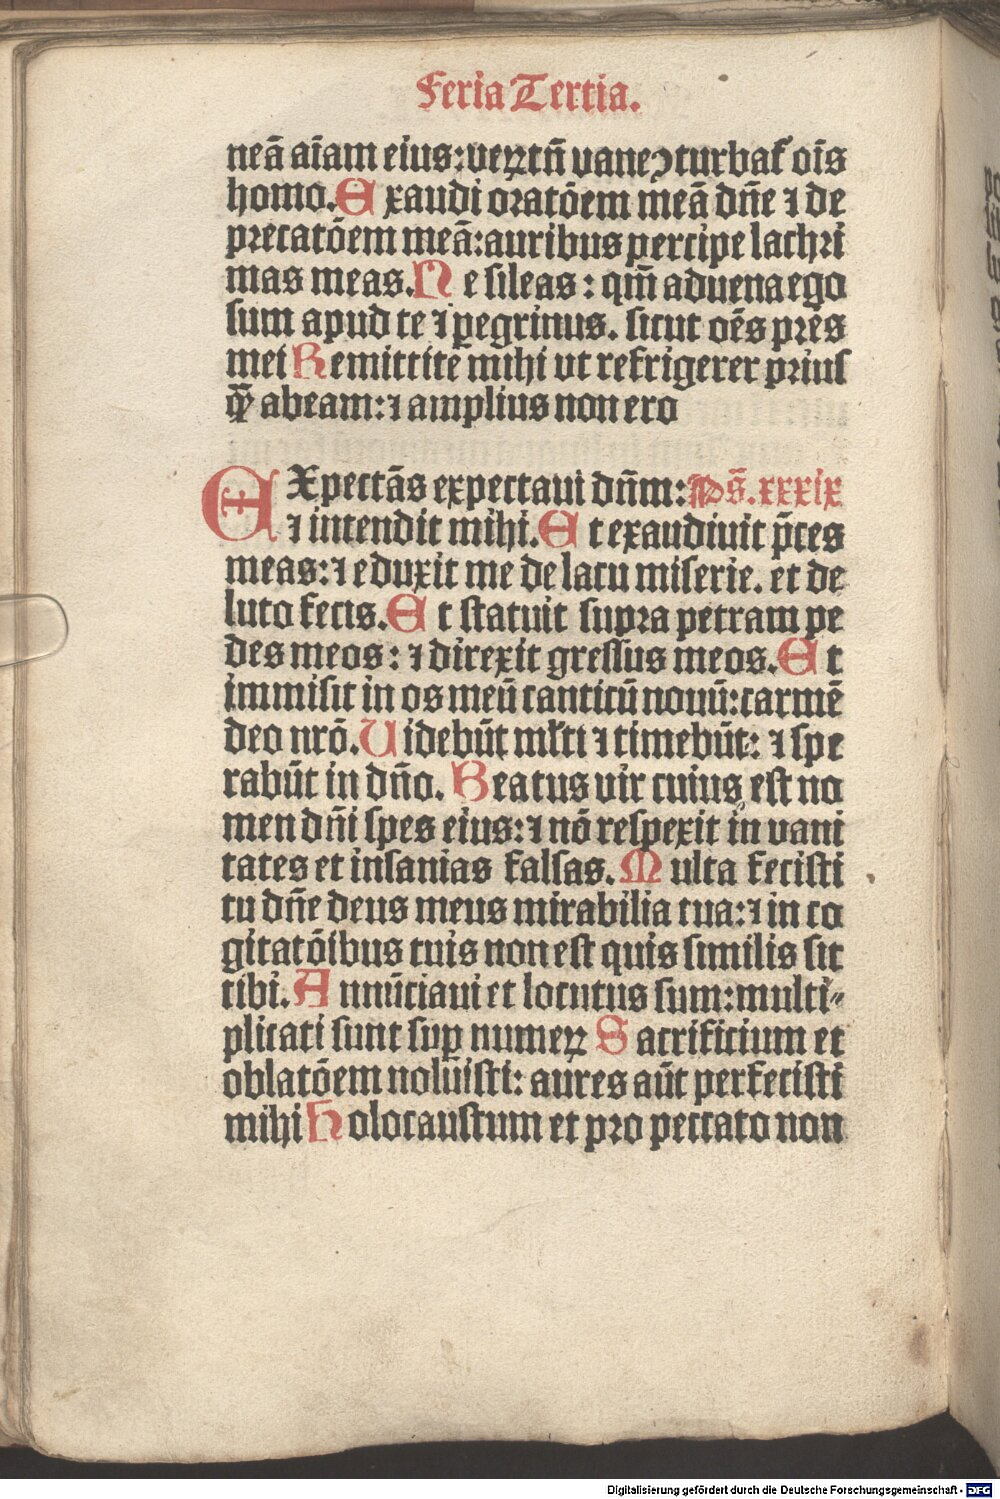 Feria Tertia.
neā aīam eius: veꝝtn̄ vane ꝯturbat᷑ oīs
homo. Exaudi oratōem meā dn̄e ⁊ de
precatōem meā: auribus percipe lachri
mas meas. Ne sileas: qm̄ aduena ego
sum apud te ⁊ ꝑegrinus. sicut oēs pr̄es
mei Remittite mihi vt refrigerer prius
qꝫ̄ abeam: ⁊ amplius non ero
EXpectās expectaui dn̄m: Ps̄. xxxix
⁊ intendit mihi. Et exaudiuit p̄ces
meas: ⁊ eduxit me de lacu miserie. et de
luto fecis. Et statuit supra petram pe
des meos: ⁊ direxit gressus meos. Et
immisit in os meū canticū nouū: carmē
deo nrō. Uidebūt ml̄ti ⁊ timebūt: ⁊ spe
rabūt in dn̄o. Beatus vir cuius est no
men dn̄i spes eius: ⁊ nō respexit in vani
tates et insanias falsas. Multa fecisti
tu dn̄e deus meus mirabilia tua: ⁊ in co
gitatōibus tuis non est quis similis sit
tibi. Annūciaui et locutus sum: multi⸗
plicati sunt suꝑ numeꝝ Sacrificium et
oblatōem noluisti: aures aūt perfecisti
mihi Holocaustum et pro peccato non
Digitalisierung gefördert durch die Deutsche Forschungsgemeinschaft - DFG